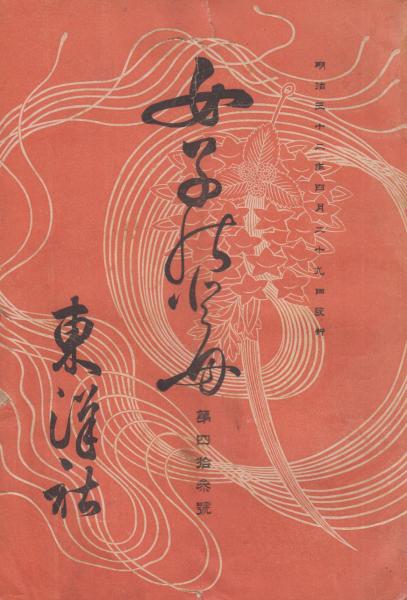 明治三十二年四月二十九日發行
女子
第四拾參號
東洋社